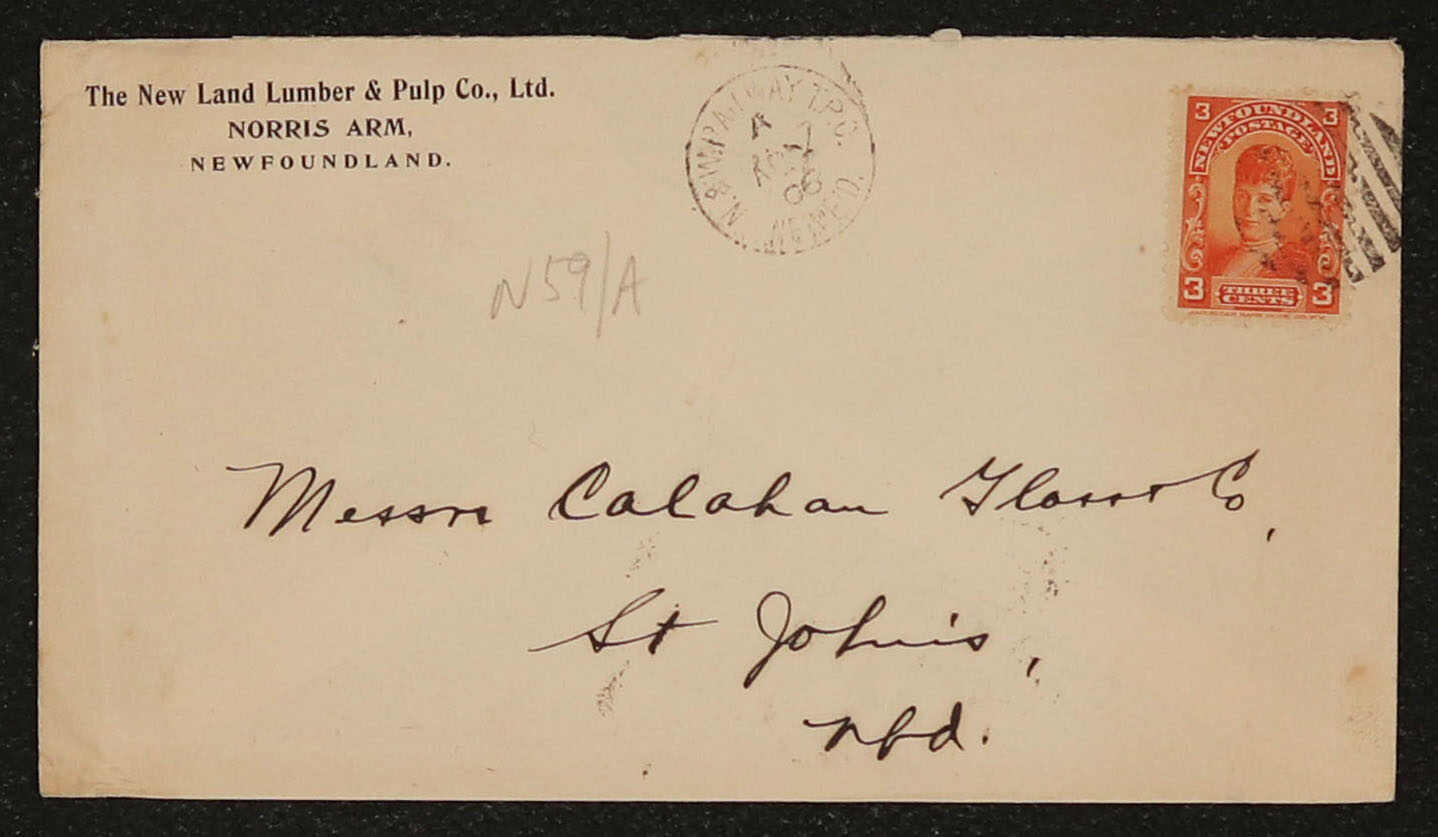 The New Land Lumber & Pulp Co., Ltd.
NORRIS ARM,
NEWFOUNDLAND.
N.&W. RAILWAY T.P.O.
A
7
06
NEWF'D.
3 3
NEWFOUNDLAND
POSTAGE
3 3
THREE
CENTS
N59/A
Messrs Calahan Glass & Co,
St John's,
Nfd.